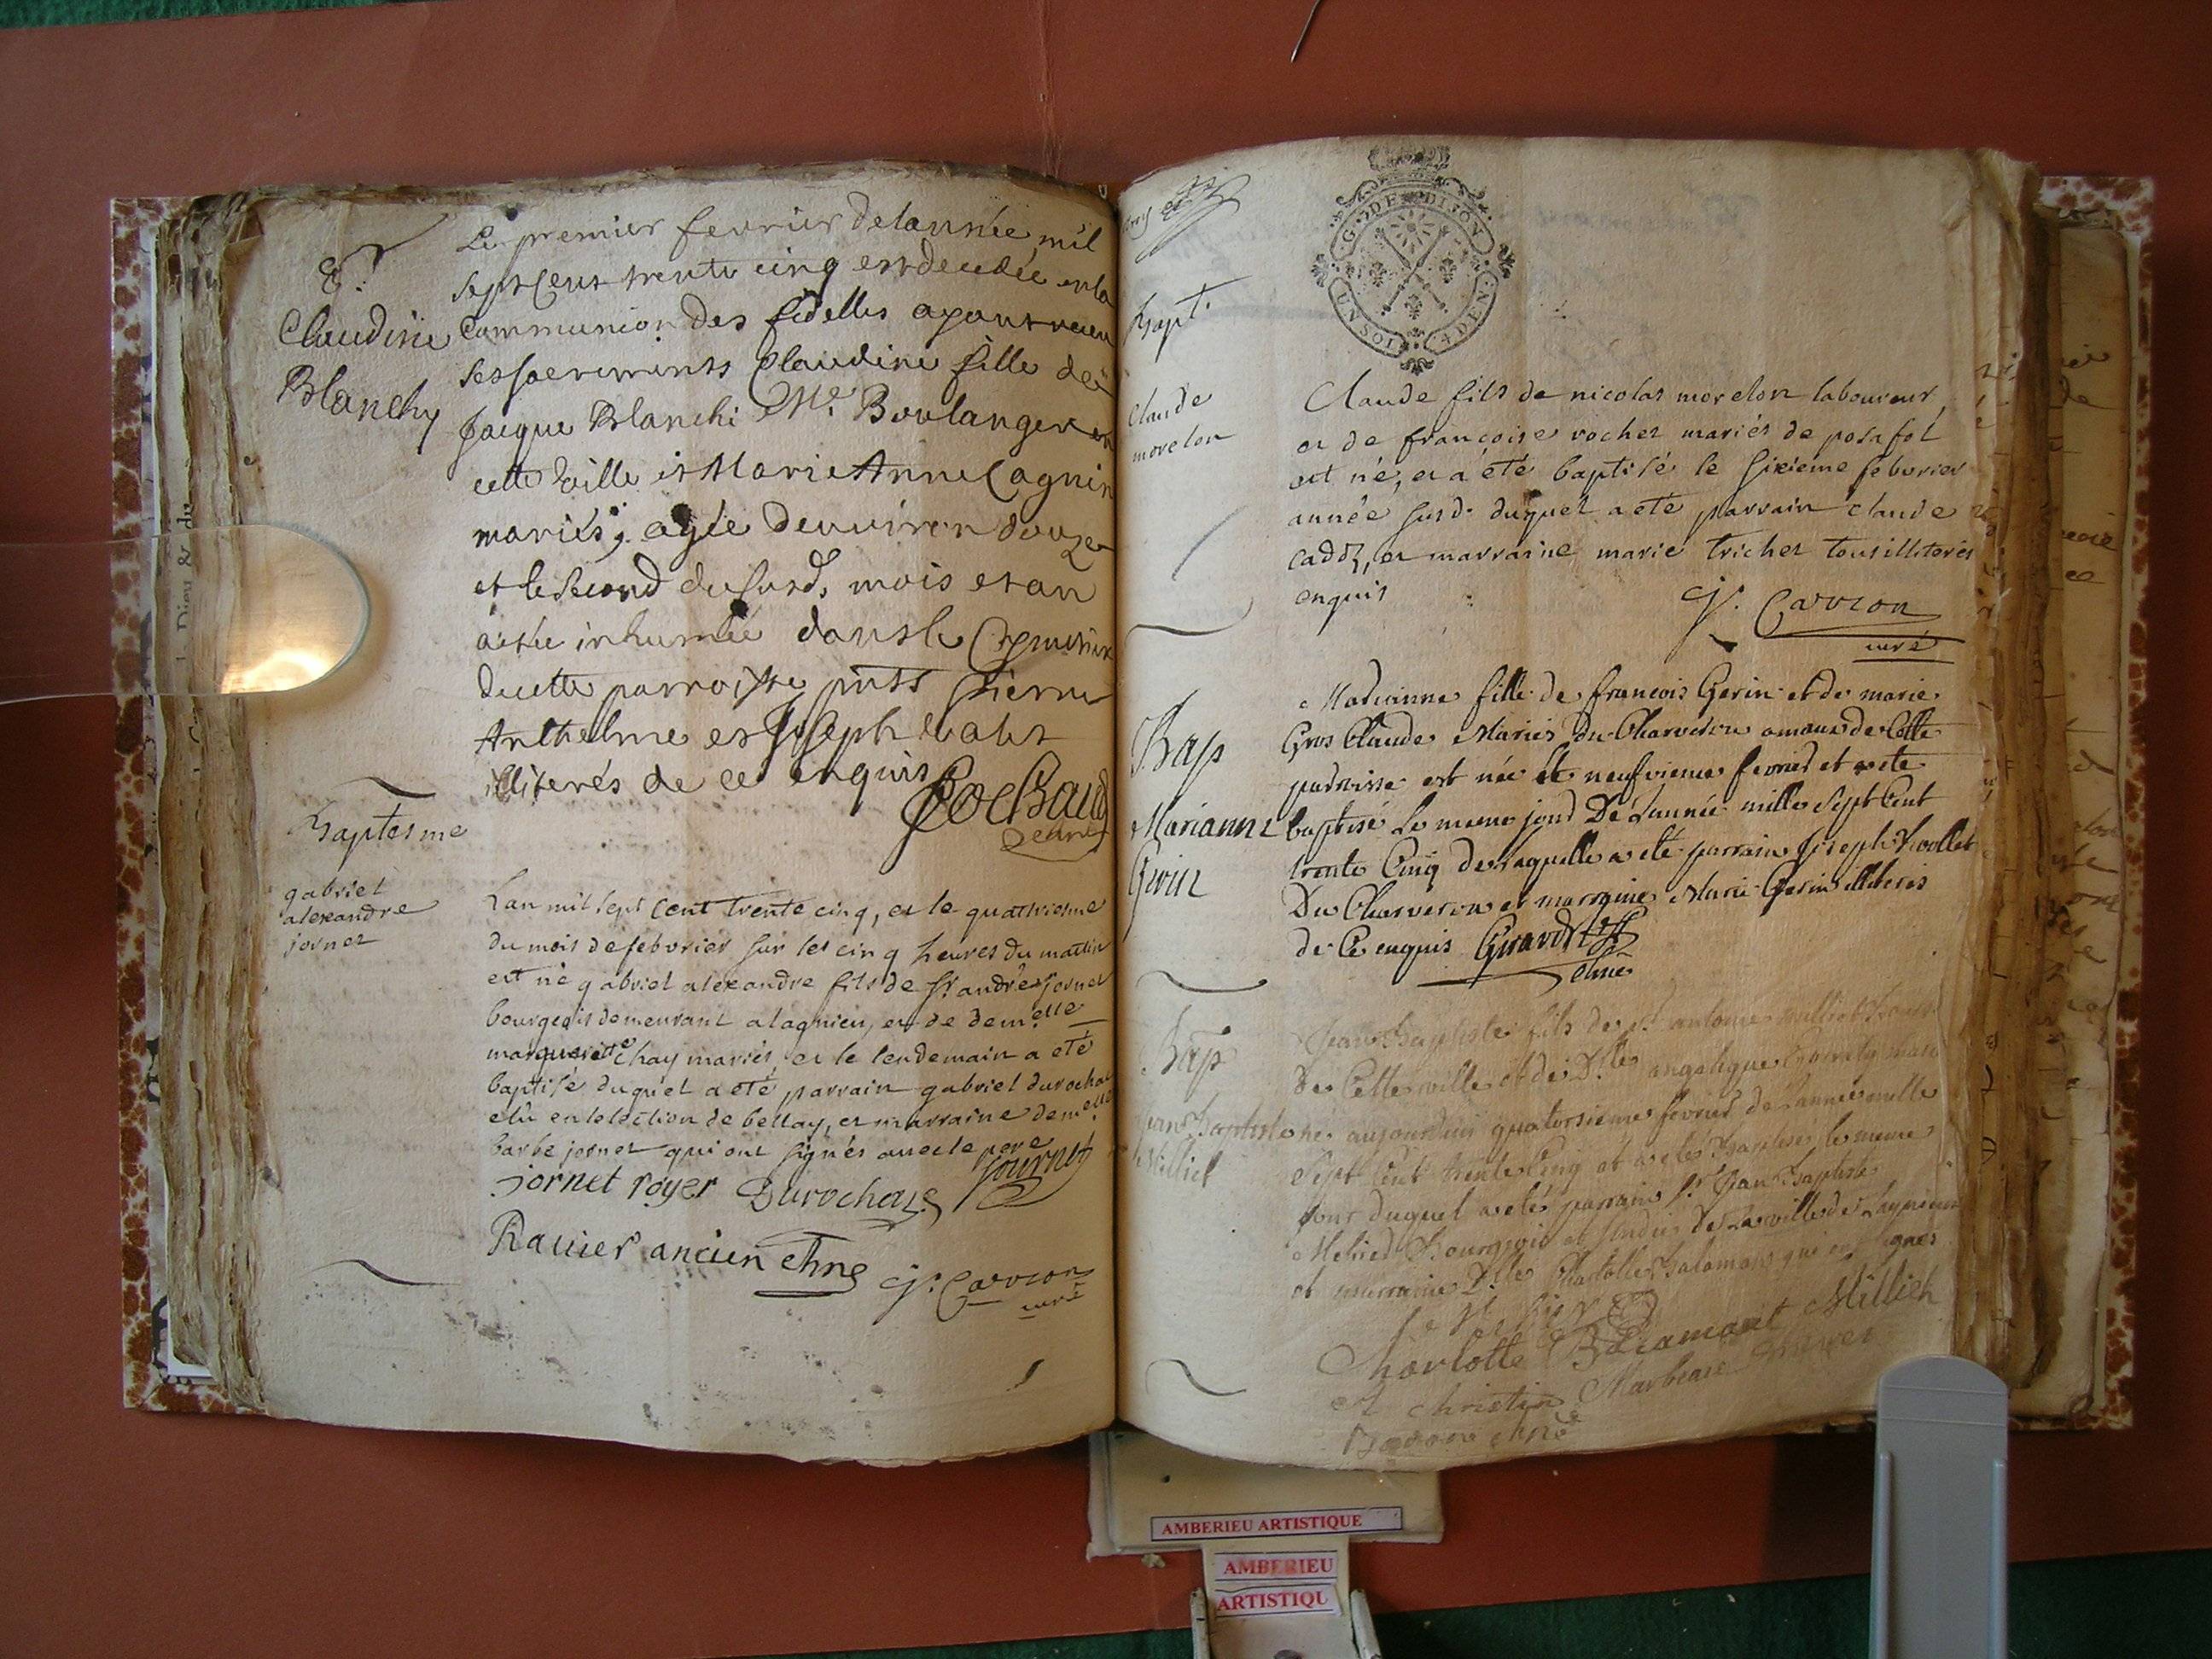 E.
Claudine
Blanchy
Le premier feurier delannée mil
sept cent trente cinq est decedée en la
Communion des fidelles ayant receu
ses sacrements Claudine fille de
Jacque Blanchi Me. Boulanger en
cette ville et Marie Anne Cagnin
mariés, agée denuiron douze
et le second du susd. mois et an
a esté inhumée dans le
de cette parroisse pnts Pierre
Anthelme et Joseph
illiterés de ce enquis
Baptesme
gabriel
alexandre
jornet
Lan mil sept cent trente cinq, et le quatriesme
du mois de feburier sur les cinq heures du mattin
est né gabriel alexandre fils de Sr. andré jornet
bourgeois demeurant a lagnieu, et de demelle
marguerite chay mariés, et le lendemain a eté
baptisé duquel a eté parrain gabriel durochat
elû en lelection de bellay, et marraine demelle
barbe jornet qui ont signés auec le pere
jornet royer Durochat Journet
Rauier ancien chne j. Carron
curé
Bapt.
Claude
morelon
G. DE DIJON
UN SOL 4 DEN
Claude fils de nicolas morelon laboureur
et de françoise rochet mariés de posafol
est né, et a été baptisé le sixieme feburier
année susd. duquel a eté parrain claude
et marraine marie trichet tous illiterés
enquis
j. Carron
curé
Bap
Marianne
Gerin
Marianne fille de francois Gerin et de marie
Gros Claude Mariés du Charveron de Cette
paroisse est née le neufvieme fevrier et a ete
baptisé le meme jour De Lannée mille sept Cent
trente Cinq de laquelle a eté parrain Joseph
Du Charveron et marraine Marie Gerin illiterés
de Ce enquis Girard
chne
Bap
jean Baptiste
Milliet
Jean Baptiste fils de sr. antoine milliet
De Cette ville et de Dlle angelique
né aujourdhui quatorsieme fevrier de lannée mille
sept Cent trente Cinq et a eté Baptisé le meme
jour duquel a eté parrain sr. Jean Baptiste
Bourgeois et sindic de la ville de Lagnieu
et marraine Dlle Charlotte qui ont signés
Charlotte Milliet
christin
chne
AMBERIEU ARTISTIQUE
AMBERIEU
ARTISTIQU